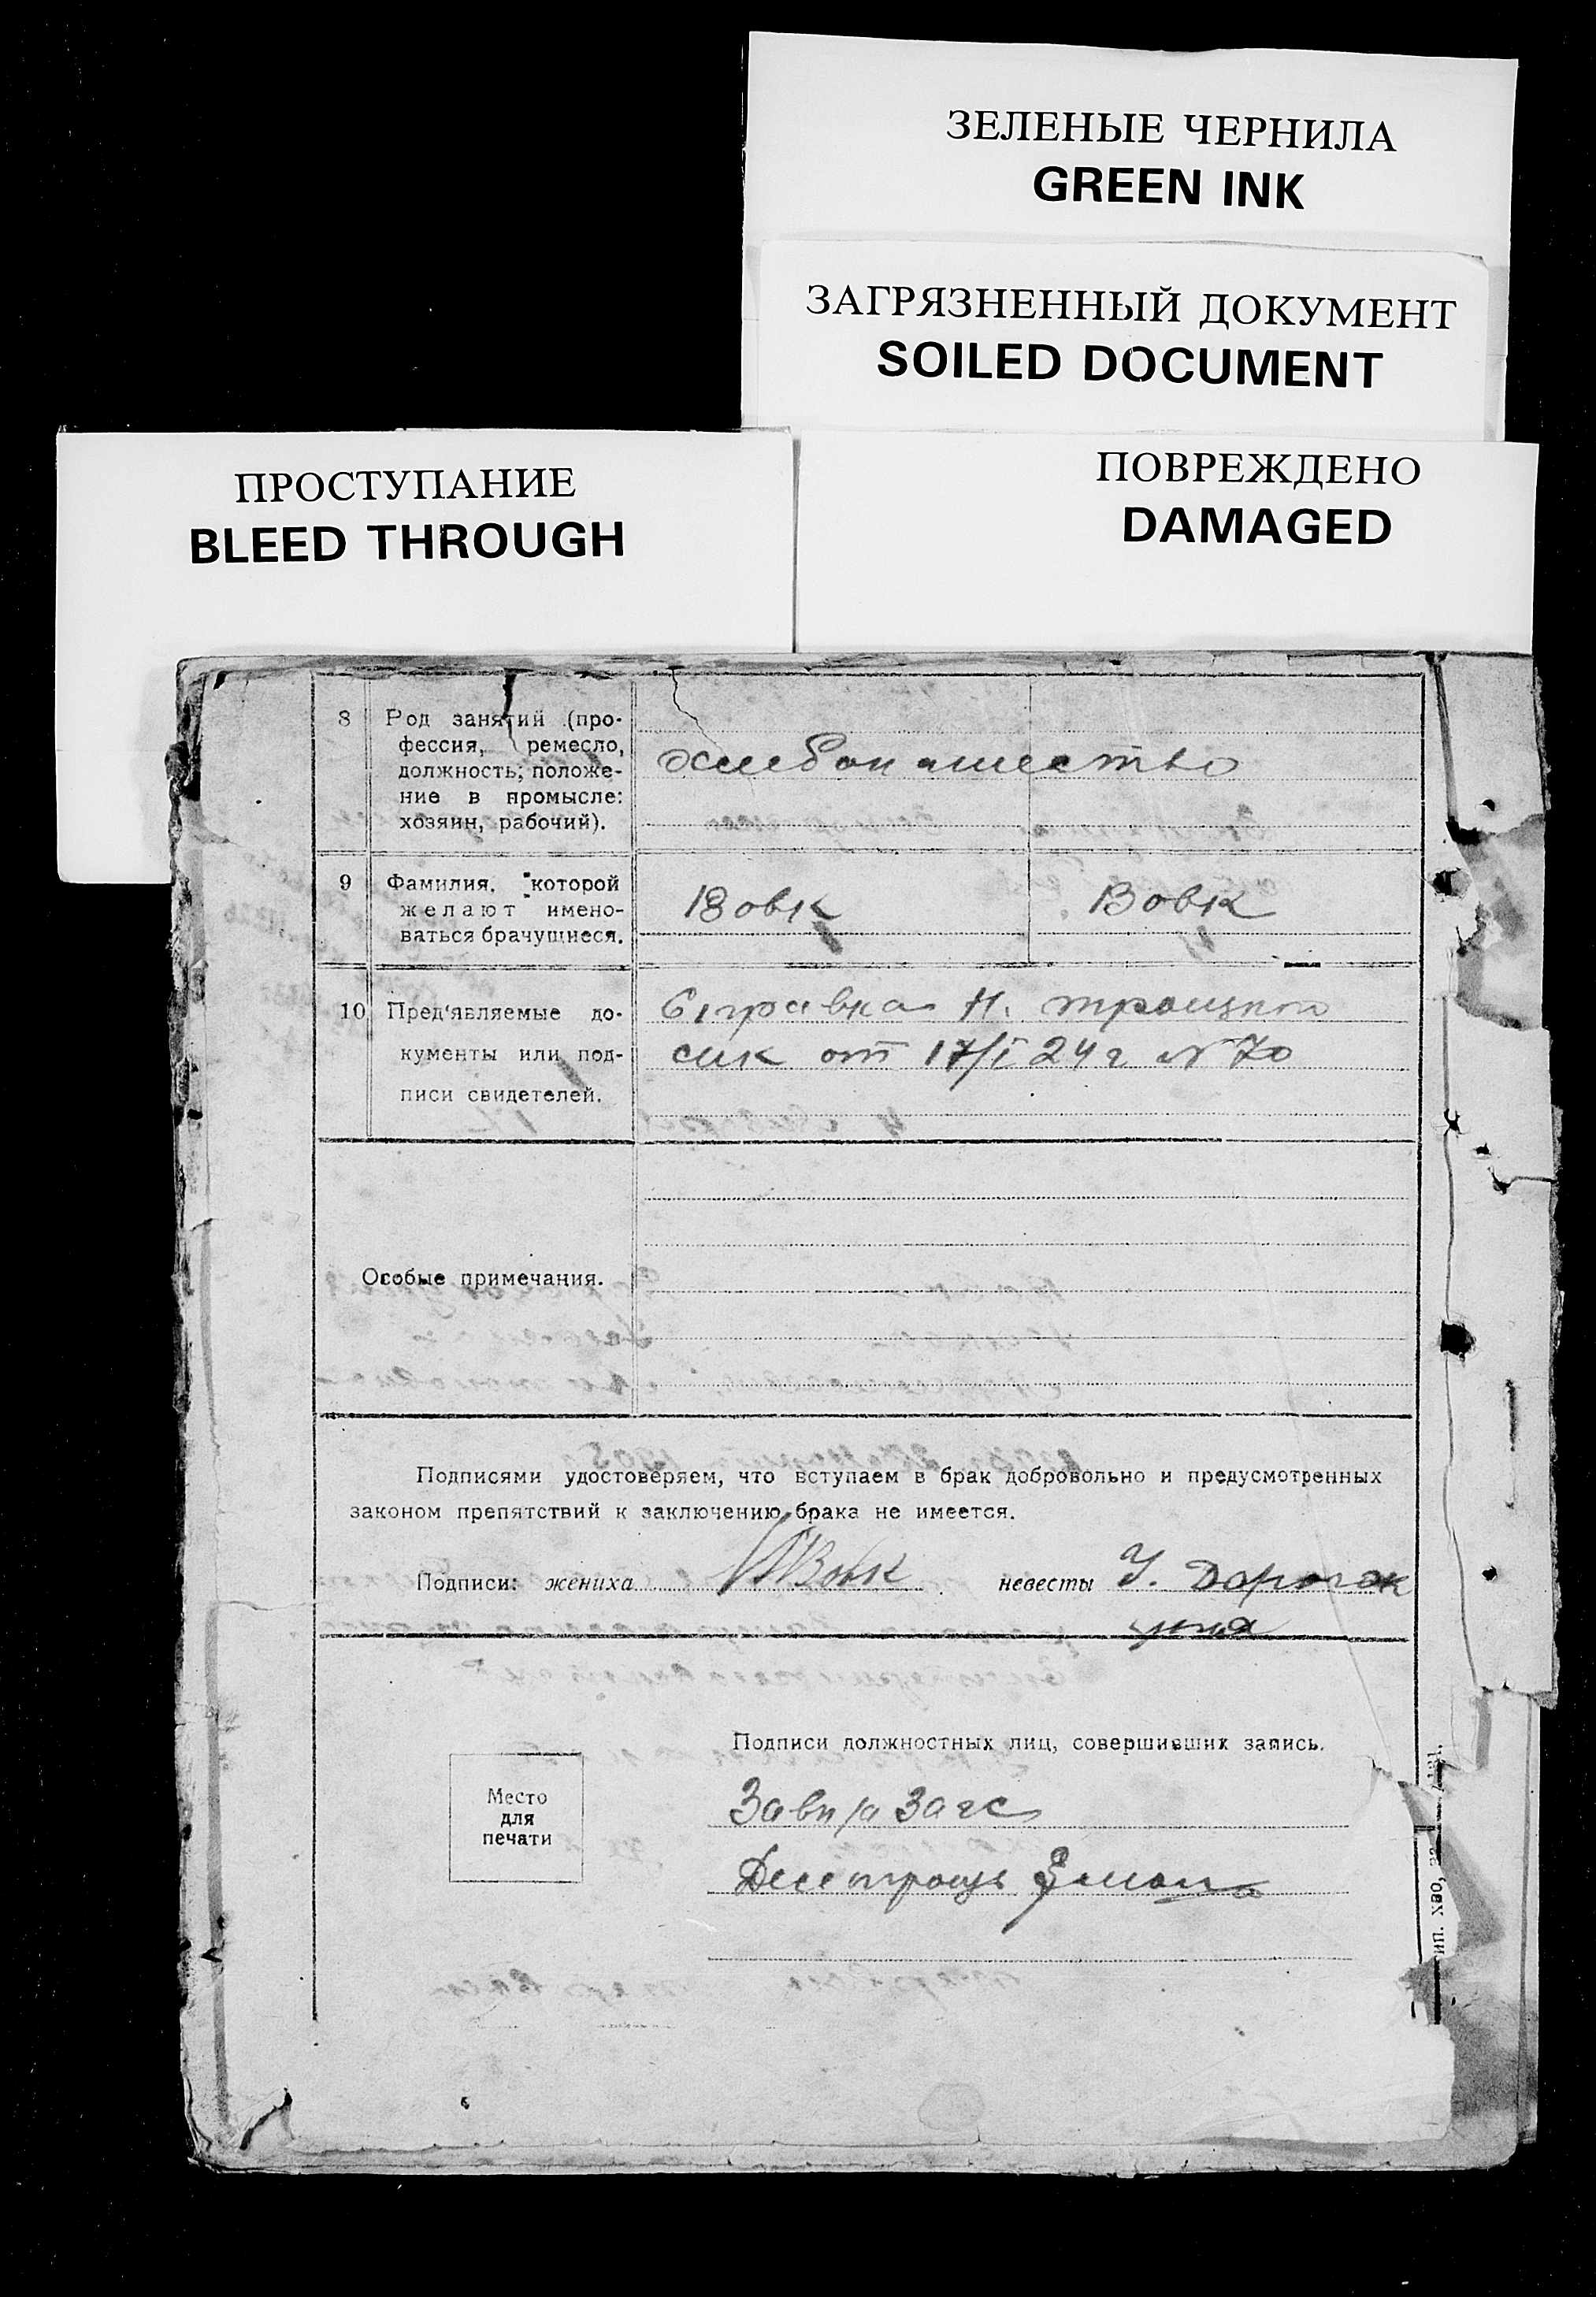 ЗЕЛЕНЫЕ ЧЕРНИЛА
GREEN INK
ЗАГРЯЗНЕННЫЙ ДОКУМЕНТ
SOILED DOCUMENT
ПРОСТУПАНИЕ
BLEED THROUGH
ПОВРЕЖДЕНО
DAMAGED
8
Род занятий (про-
фессия, ремесло,
должность; положе-
ние в промысле:
хозяин, рабочий).
хлебопашество
9
Фамилия, которой
желают имено-
ваться брачущиеся.
Вовк
Вовк
10
Пред'являемые до-
кументы или под-
писи свидетелей.
Справка Н. троицкого
сик от 17/I 24 г N 70
Особые примечания.
Подписями удостоверяем, что вступаем в брак добровольно и предусмотренных
законом препятствий к заключению брака не имеется.
Подписи: жениха Вовк невесты У. Дорогок
Подписи должностных лиц, совершивших запись.
Место
для
печати
Зав Загс